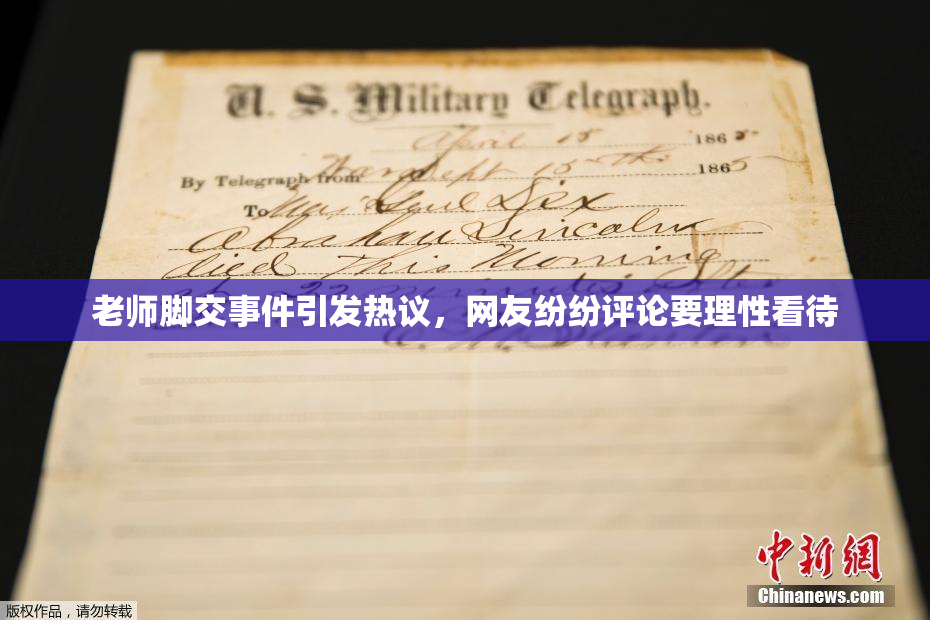 U. S. Military Telegraph.
April 15 1865
By Telegraph from War Dept 15th 1865
To Maj Genl Dix
Abraham Lincoln
died This Morning
at 22 minutes after
老师脚交事件引发热议，网友纷纷评论要理性看待
E. M. Stanton
中新网
Chinanews.com
版权作品，请勿转载